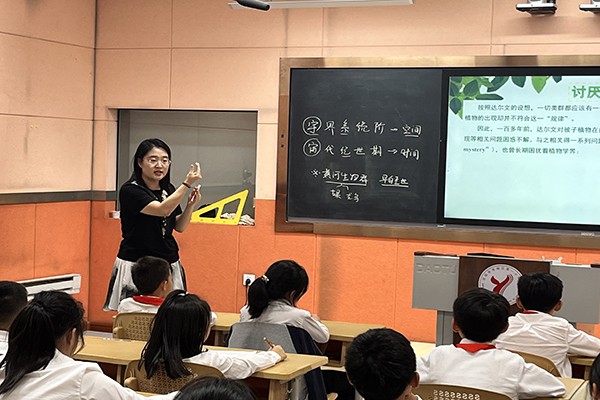 宇 界系统阶→空间
宙 代纪世期→时间
※热河生物群 早白垩世
讨厌
按照达尔文的设想，一切类群都应该有一
植物的出现却并不符合这一“规律”。
因此，一百多年前，达尔文对被子植物
现等相关问题困惑不解。与之相关得一系列问题
mystery”)，也曾长期困扰着植物学界。